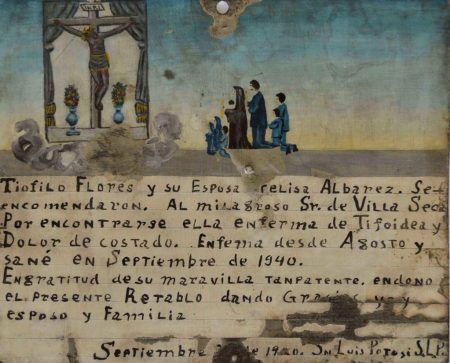 INRI
Tiofilo Flores y su Esposa Felisa Albarez. Se
encomendaron. Al milagroso Sr. de Villa Seca
Por encontrarse ella enferma de Tifoidea y
Dolor de costado. Enferma desde Agosto y
sané en Septiembre de 1940.
Engratitud de su maravilla tanpatente. endono
el presente Retablo dando Gracias yo y
esposo y Familia
Septiembre de 1940. Sn Luis Potosi S.L.P.